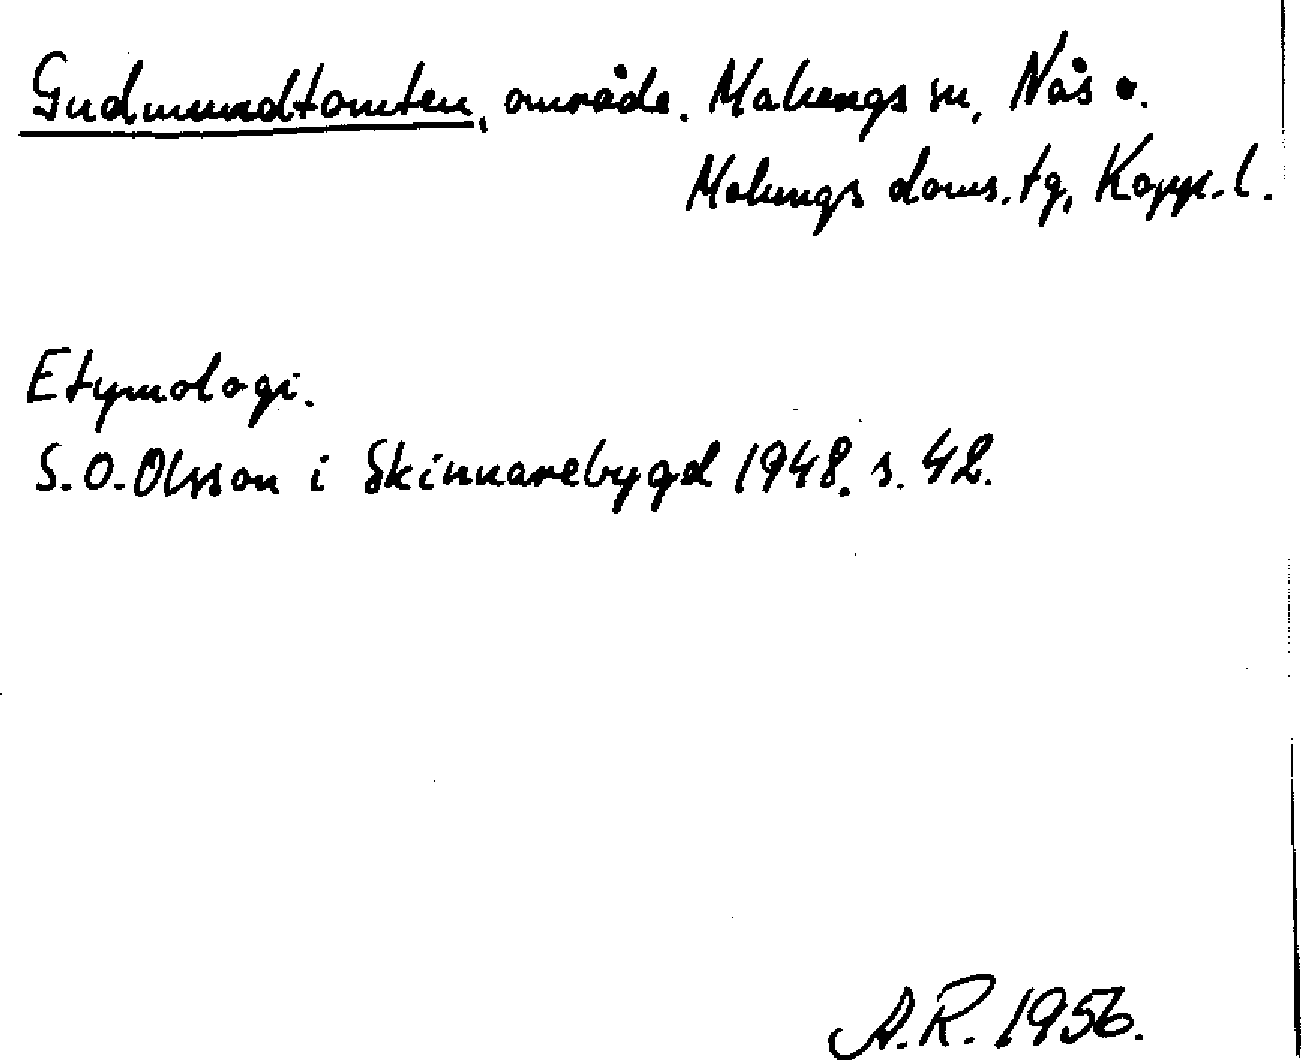 Gudmundtomten, område. Malungs sn, Nås o.
Malungs doms. tg, Kopp. l.
Etymologi.
S. O. Olsson i Skinnarebygd 1948. s. 42.
A. R. 1956.